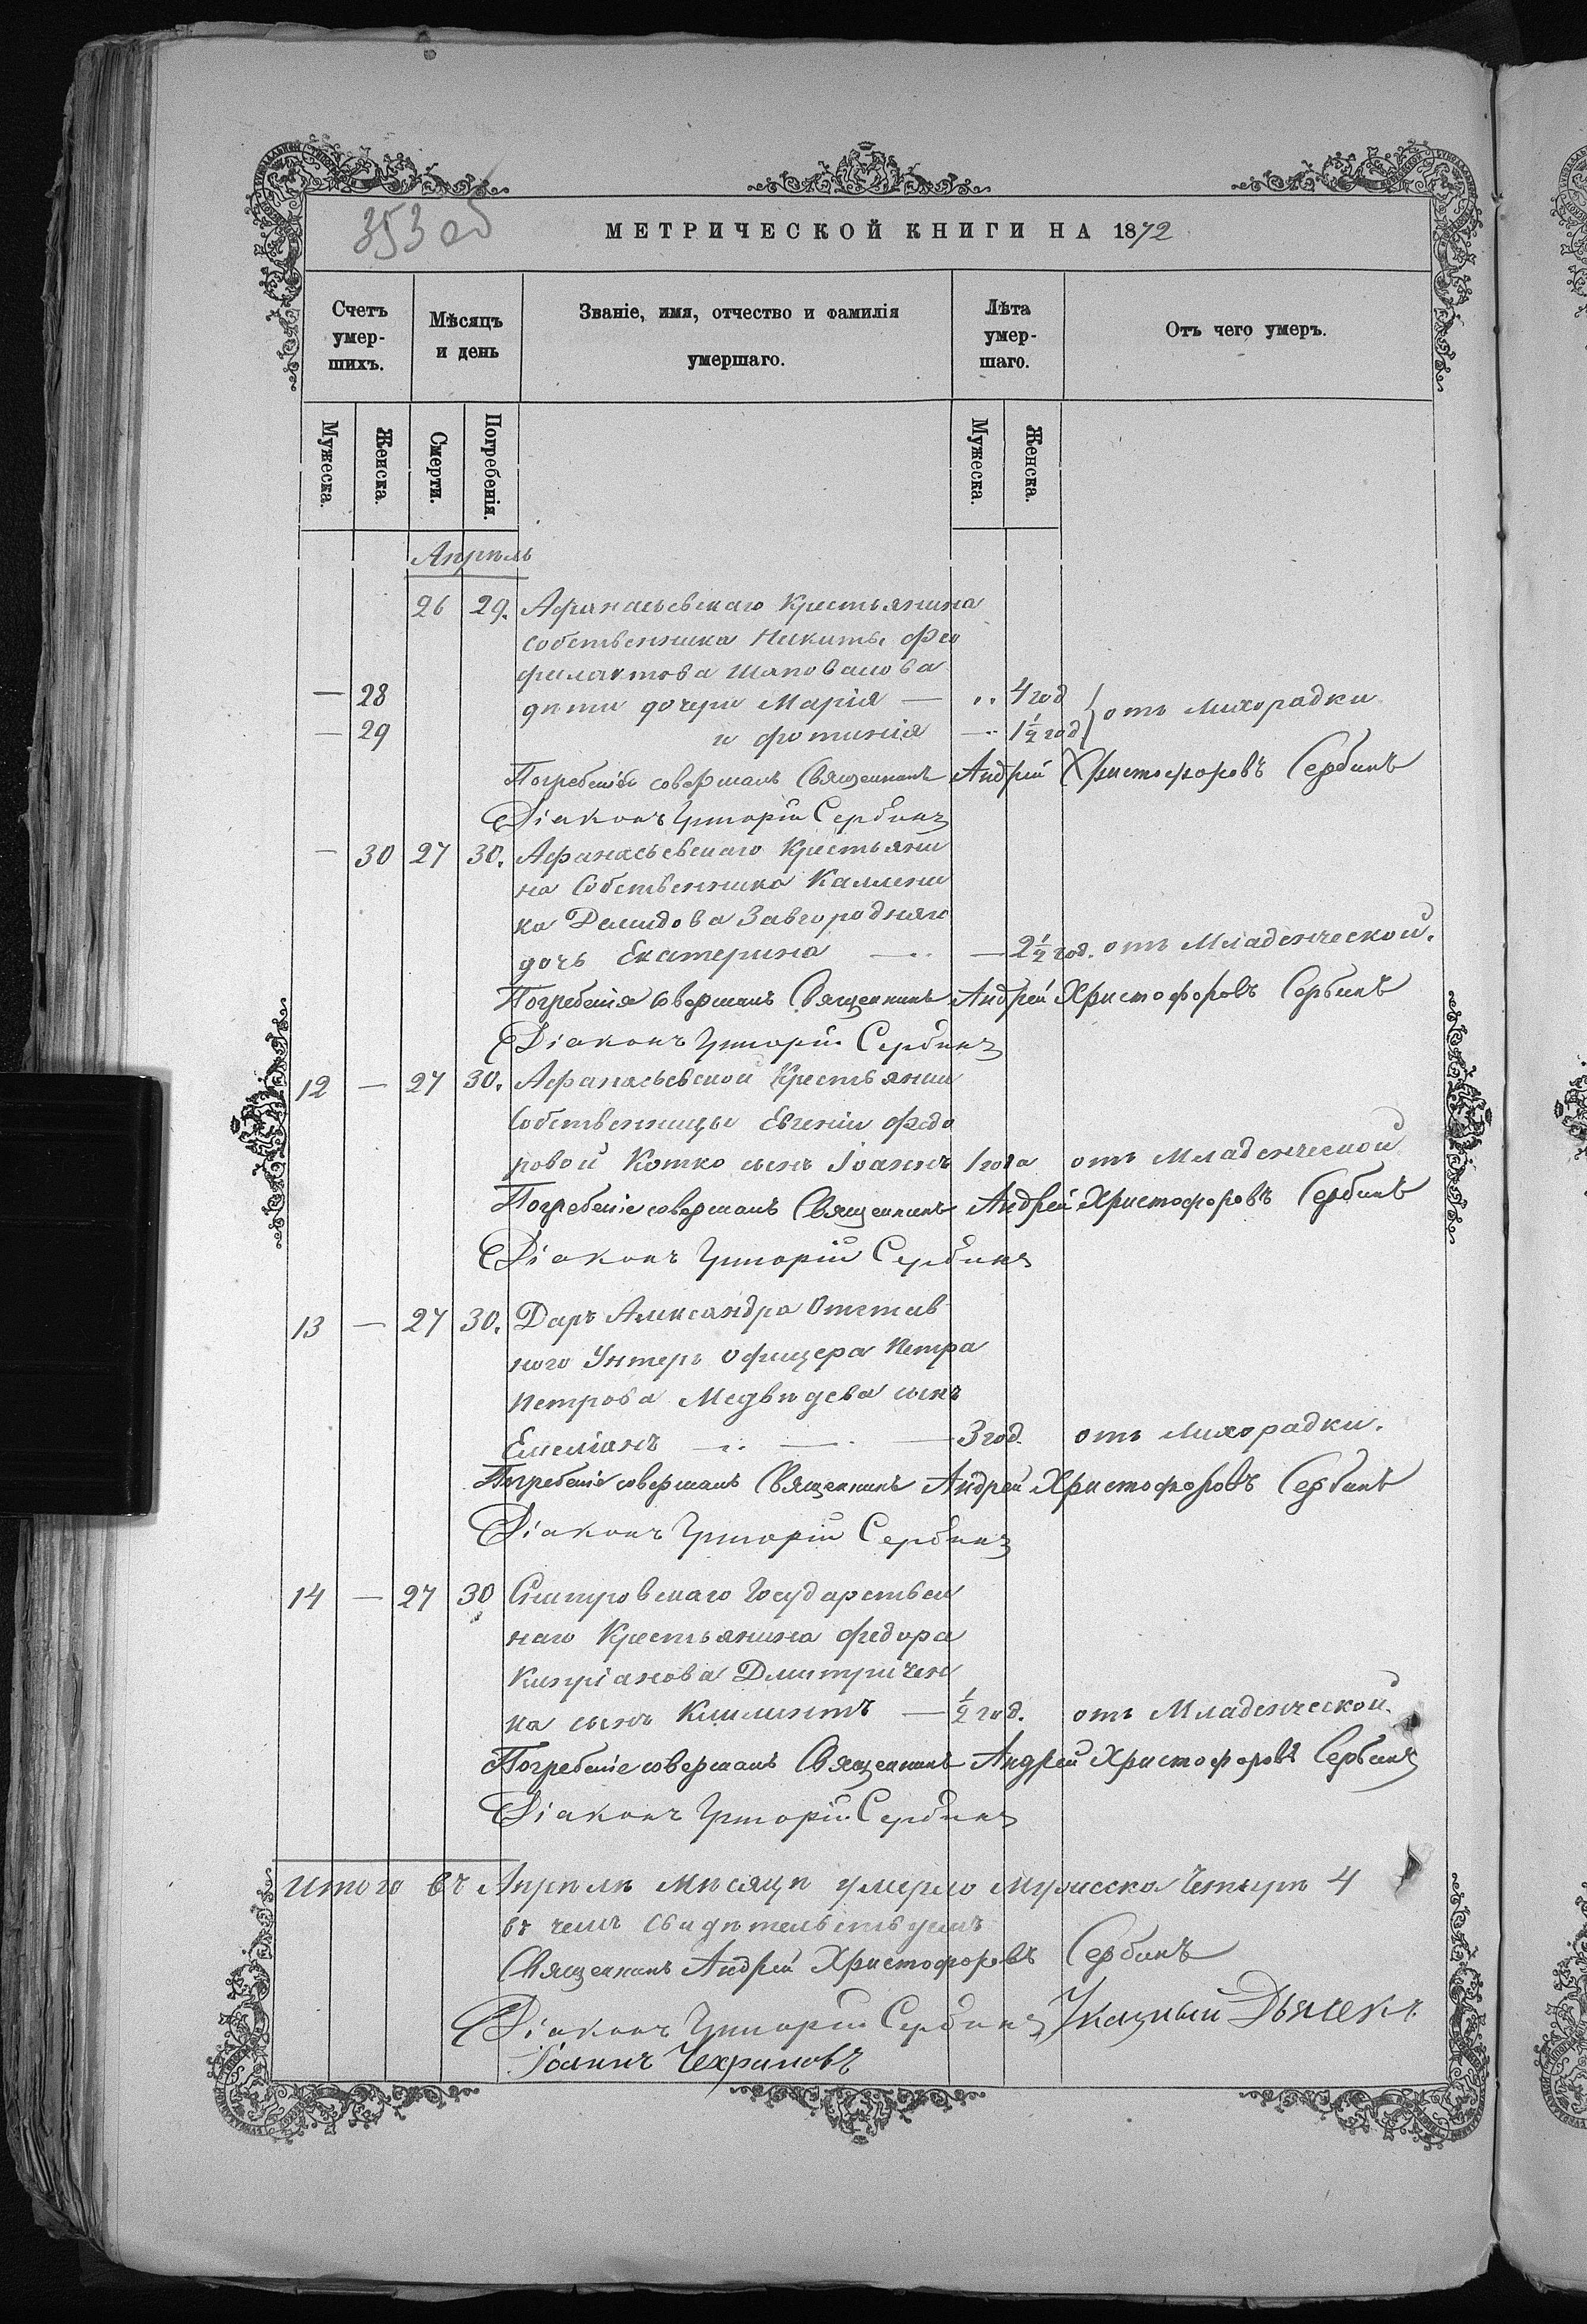 353 об
МЕТРИЧЕСКОЙ КНИГИ НА 1872
Счетъ умер- шихъ.
Мѣсяцъ и день
Званіе, имя, отчество и фамилія умершаго.
Лѣта умер- шаго.
Отъ чего умеръ.
Мужеска. Женска. Смерти. Погребенія. Мужеска. Женска.
Апрѣль
26 29. Афанасьевскаго Крестьянина
собственника Никиты Фео
филактова Шаповалова
— 28 дѣти дочери Марія — 4 год
— 29 и Фотинія — 1½ год. отъ лихорадки
Погребеніе совершалъ Священникъ Андрей Христофоровъ Сербинъ
Діаконъ Григорій Сербинъ
— 30 27 30. Афанасьевскаго Крестьяни
на Собственника Каллени
ка Демидова Завгородняго
дочь Екатерина — 2½ год. отъ Младенческой.
Погребенія совершалъ Священникъ Андрей Христофоровъ Сербинъ
Діаконъ Григорій Сербинъ
12 — 27 30. Афанасьевской Крестьянки
Собственницы Евгеніи Федо
ровой Котко сынъ Іоаннъ 1 года отъ Младенческой
Погребеніе совершалъ Священникъ Андрей Христофоровъ Сербинъ
Діаконъ Григорій Сербинъ
13 — 27 30. Даръ Александра Отстав
ного Унтеръ офицера Петра
Петрова Медвѣдева сынъ
Емеліанъ — 3 год. отъ лихорадки.
Погребеніе совершалъ Священникъ Андрей Христофоровъ Сербинъ
Діаконъ Григорій Сербинъ
14 — 27 30 Государствен
наго Крестьянина Федора
Кипріанова Дмитричен
ка сынъ Климентъ — ½ год. отъ Младенческой.
Погребеніе совершалъ Священникъ Андрей Христофоровъ Сербинъ
Діаконъ Григорій Сербинъ
Итого въ Апрѣлѣ мѣсяцѣ умерло мужеска четыре 4
въ чемъ свидѣтельствуемъ
Священникъ Андрей Христофоровъ Сербинъ
Діаконъ Григорій Сербинъ, Указный Дьячекъ
Іоаннъ Чехрановъ